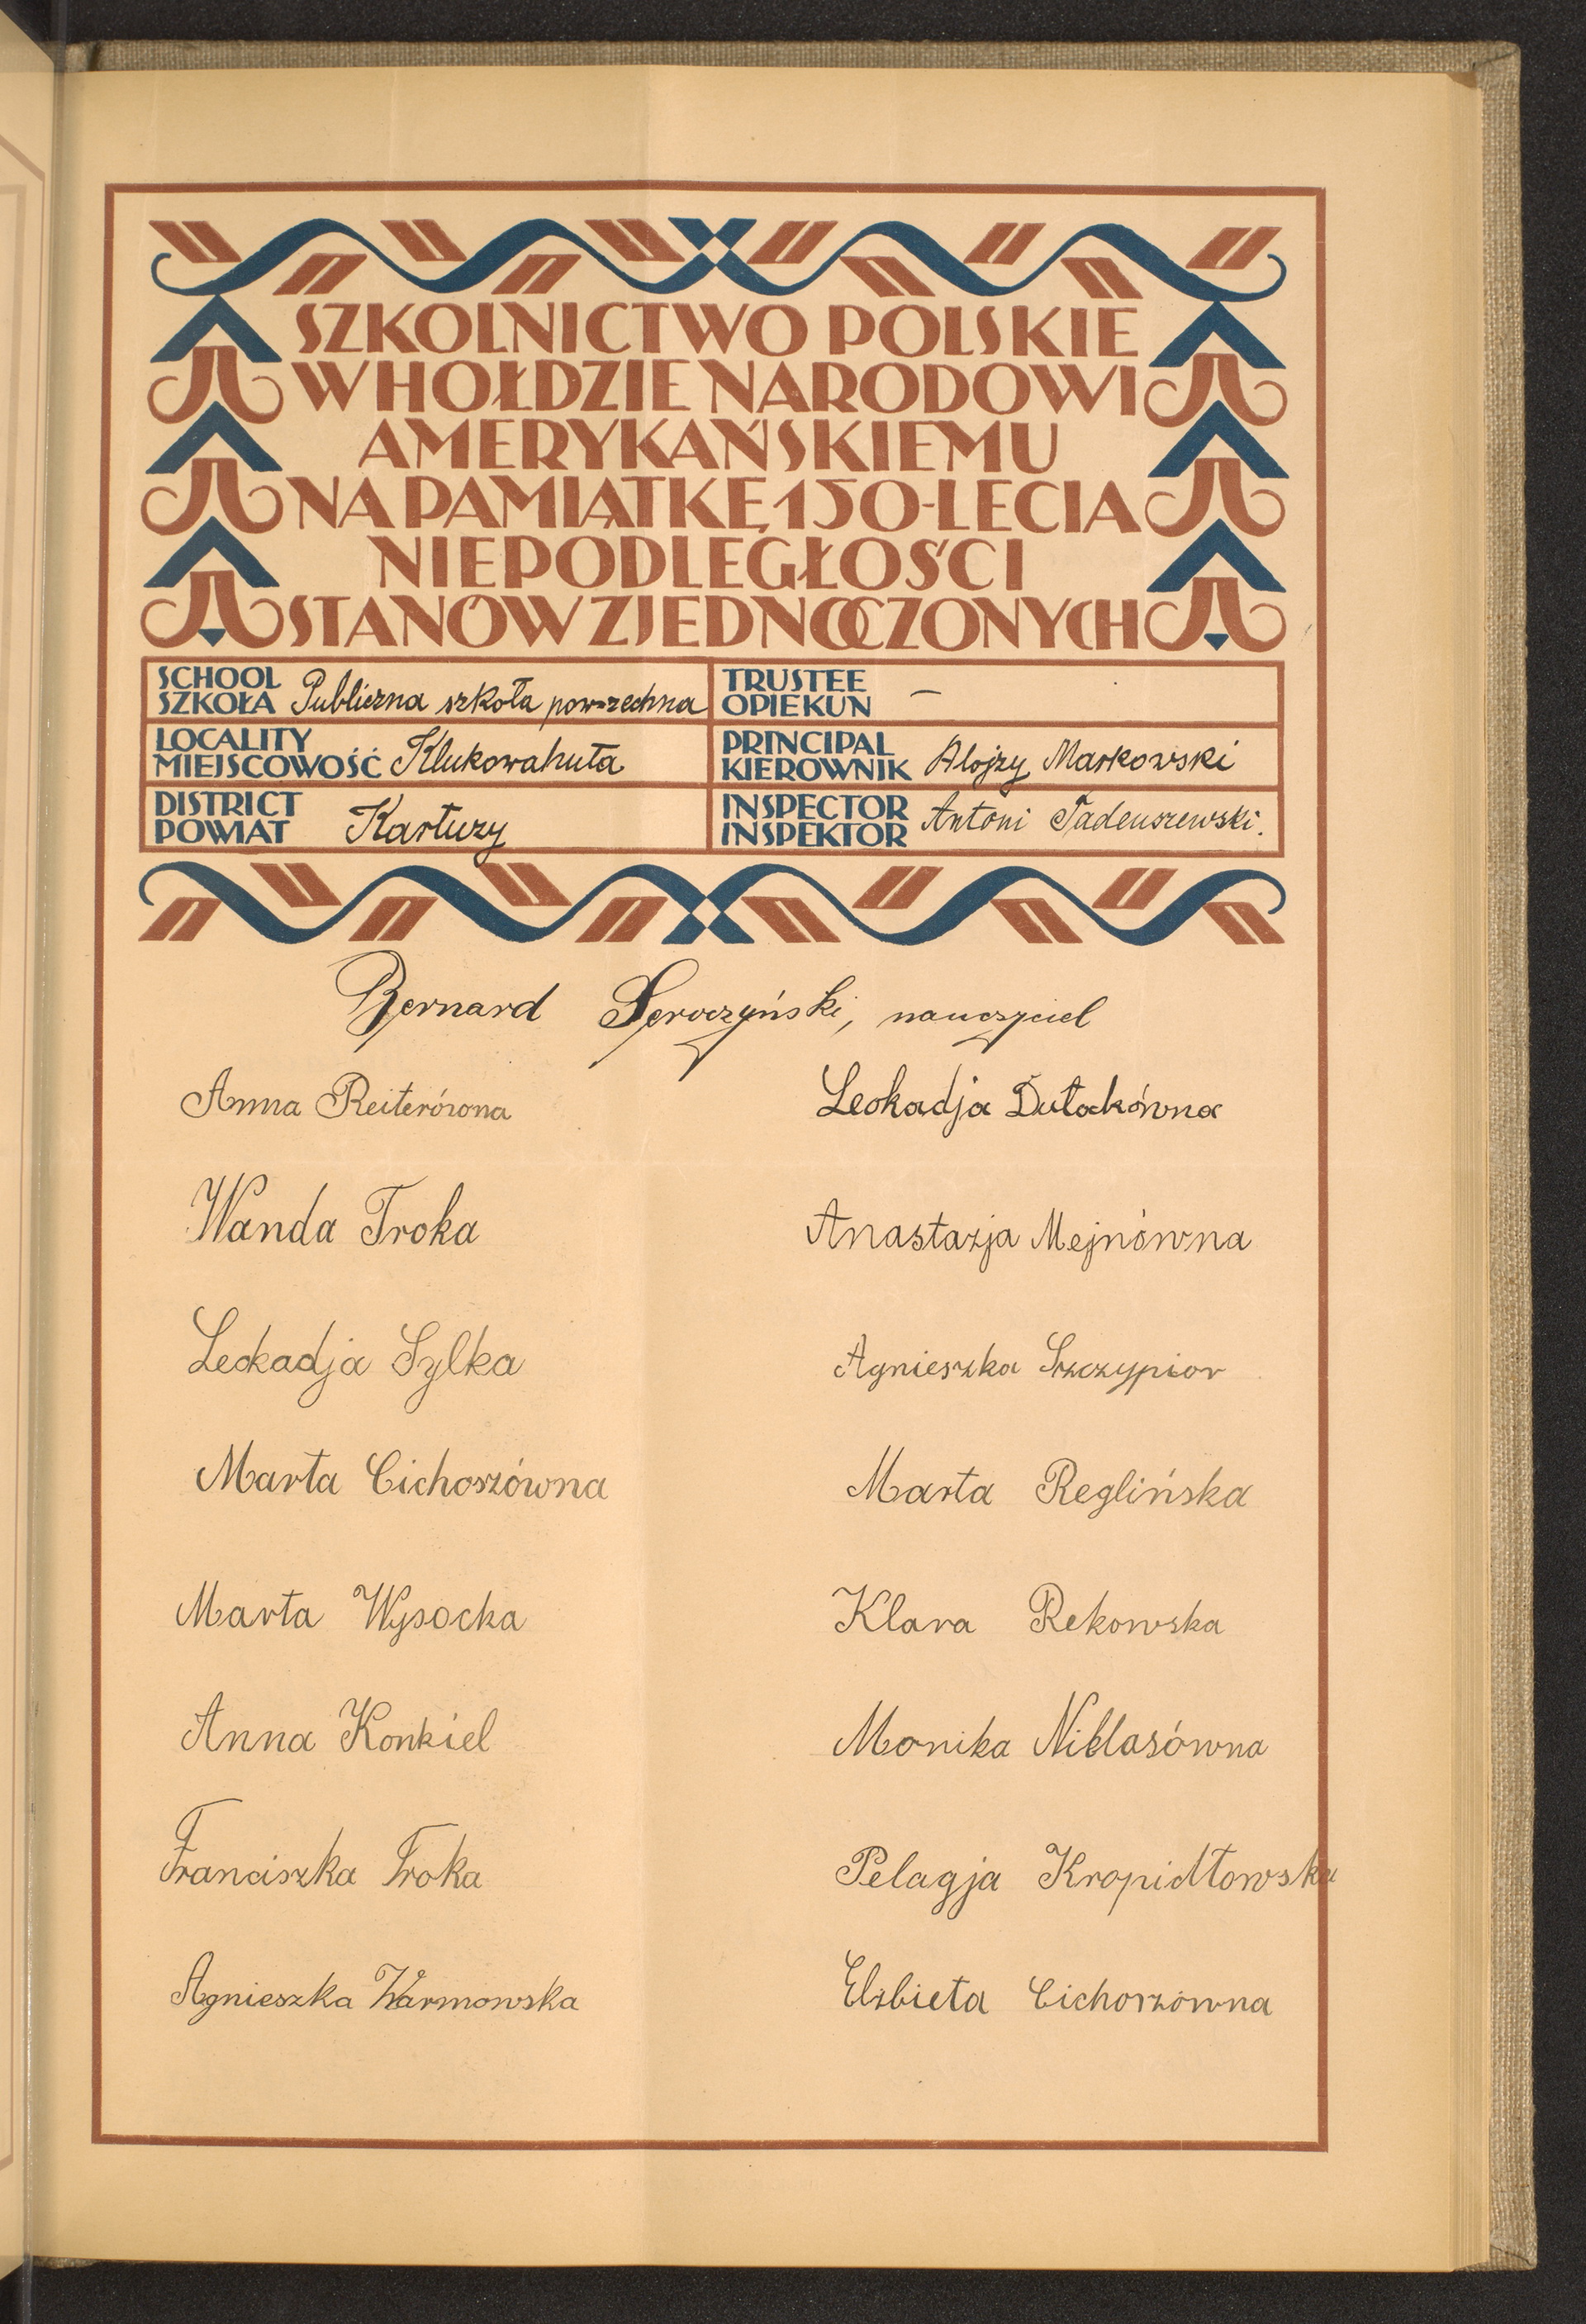 SZKOLNICTWO POLSKIE
W HOŁDZIE NARODOWI
AMERYKAŃSKIEMU
NA PAMIĄTKĘ 150-LECIA
NIEPODLEGŁOŚCI
STANÓW ZJEDNOCZONYCH
SCHOOL
SZKOŁA Publiczna szkoła powszechna
TRUSTEE
OPIEKUN —
LOCALITY
MIEJSCOWOŚĆ Klukowahuta
PRINCIPAL
KIEROWNIK Alojzy Markowski
DISTRICT
POWIAT Kartuzy
INSPECTOR
INSPEKTOR Antoni Tadeuszewski.
Bernard Seroczyński, nauczyciel
Anna Reiterówna
Leokadja Dułakówna
Wanda Troka
Anastazja Mejnówna
Leokadja Sylka
Agnieszka Szczypior
Marta Cichoszówna
Marta Reglińska
Marta Wysocka
Klara Rekowska
Anna Konkiel
Monika Niklasówna
Franciszka Troka
Pelagja Kropidłowska
Agnieszka Warmowska
Elżbieta Cichoszówna